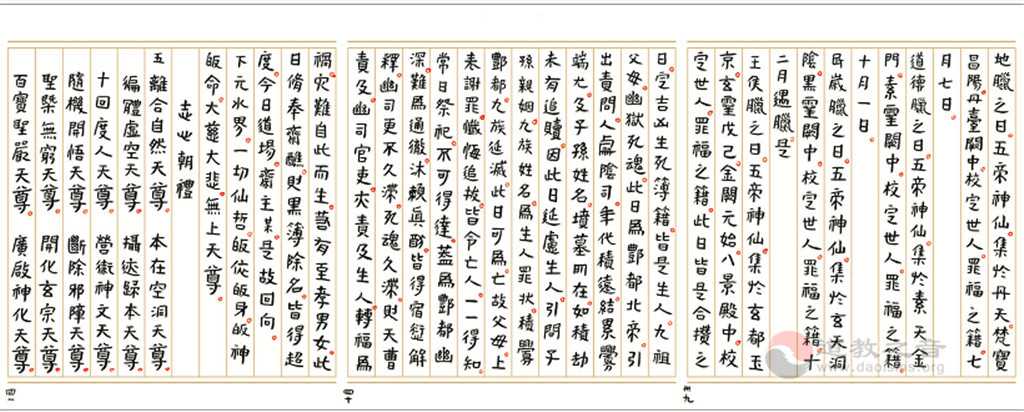 地臘之日五帝神仙集於丹天梵寶
昌陽丹臺闕中校定世人罪福之籍七
月七日
道德臘之日五帝神仙集於素天金
門素靈闕中校定世人罪福之籍
十月一日
民歲臘之日五帝神仙集於玄天洞
陰黑靈闕中校定世人罪福之籍十
二月遇臘是
王侯臘之日五帝神仙集於玄都玉
京玄靈戊己金闕元始八景殿中校
定世人罪福之籍此日皆是合攢之
卅九
日定吉凶生死簿籍皆是生人九祖
父母幽獄死魂此日為酆都北帝引
出責問人處陰司年代積遠結累釁
端尤及子孫姓名墳墓所在如積劫
未有追贖因此日延慮生人引問子
孫親姻九族姓名為生人罪狀積釁
酆都九族延滅此日可為亡故父母上
表謝罪懺悔追拔皆令亡人一一得知
常日祭祀不可得達蓋為酆都幽
深難為通徹沐賴真醮皆得宿愆解
釋幽司更不久滯死魂久滯則天曹
責及幽司官吏夾責及生人轉福為
四十
禍灾難自此而生若有至孝男女此
日脩奉齋醮則黑簿除名皆得超
度今日道場齋主某是故回向
下元水界一切仙哲皈依皈身皈神
皈命大慈大悲無上天尊
志心朝禮
五離合自然天尊 本在空洞天尊
徧體虛空天尊 攝迷歸本天尊
十回度人天尊 營衛神文天尊
隨機開悟天尊 斷除邪障天尊
聖槩無窮天尊 開化玄宗天尊
百寶聖嚴天尊 廣啟神化天尊
四一
道教之音
www.daoisms.org